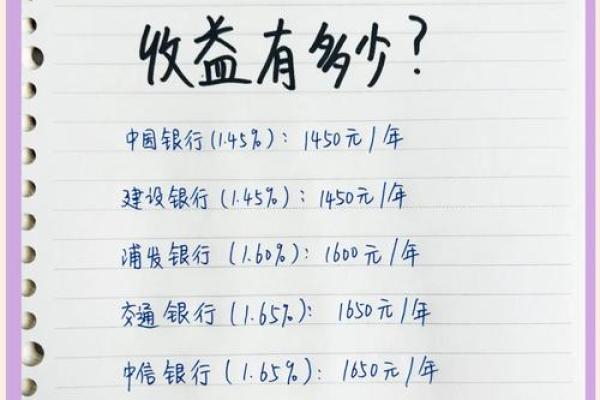 收益有多少?
中国银行(1.45%): 1450元/年
建设银行(1.45%): 1450元/年
浦发银行(1.60%): 1600元/年
交通银行(1.65%): 1650元/年
中信银行(1.65%): 1650元/年